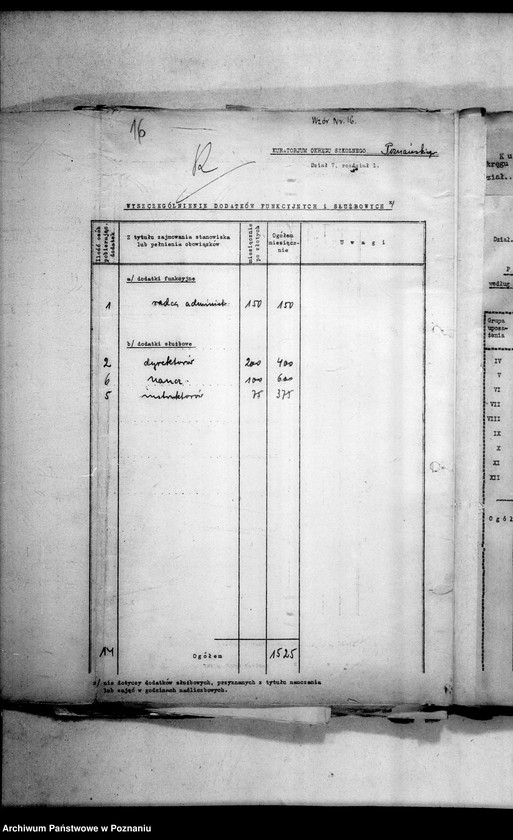 Wzór Nr. 16.
16
KURATORJUM OKRĘGU SZKOLNEGO Poznańskiego
Dział 7, rozdział 1.
R
WYSZCZEGÓLNIENIE DODATKÓW FUNKCYJNYCH i SŁUŻBOWYCH x/
Ilość osób pobierając. dodatek
Z tytułu zajmowania stanowiska lub pełnienia obowiązków
miesięcznie po złotych
Ogółem miesięcznie
U w a g i
a/ dodatki funkcyjne
1 radca administr. 150 150
b/ dodatki służbowe
2 dyrektorów 200 400
6 100 600
5 instruktorów 75 375
14 Ogółem 1525
x/ nie dotyczy dodatków służbowych, przyznanych z tytułu nauczania
lub zajęć w godzinach nadliczbowych.
Ku
kręgu
ział..
Dział.
P
według
Grupa
uposa-
żenia
IV
V
VI
VII
VIII
IX
X
XI
XII
O g ó ł
Archiwum Państwowe w Poznaniu